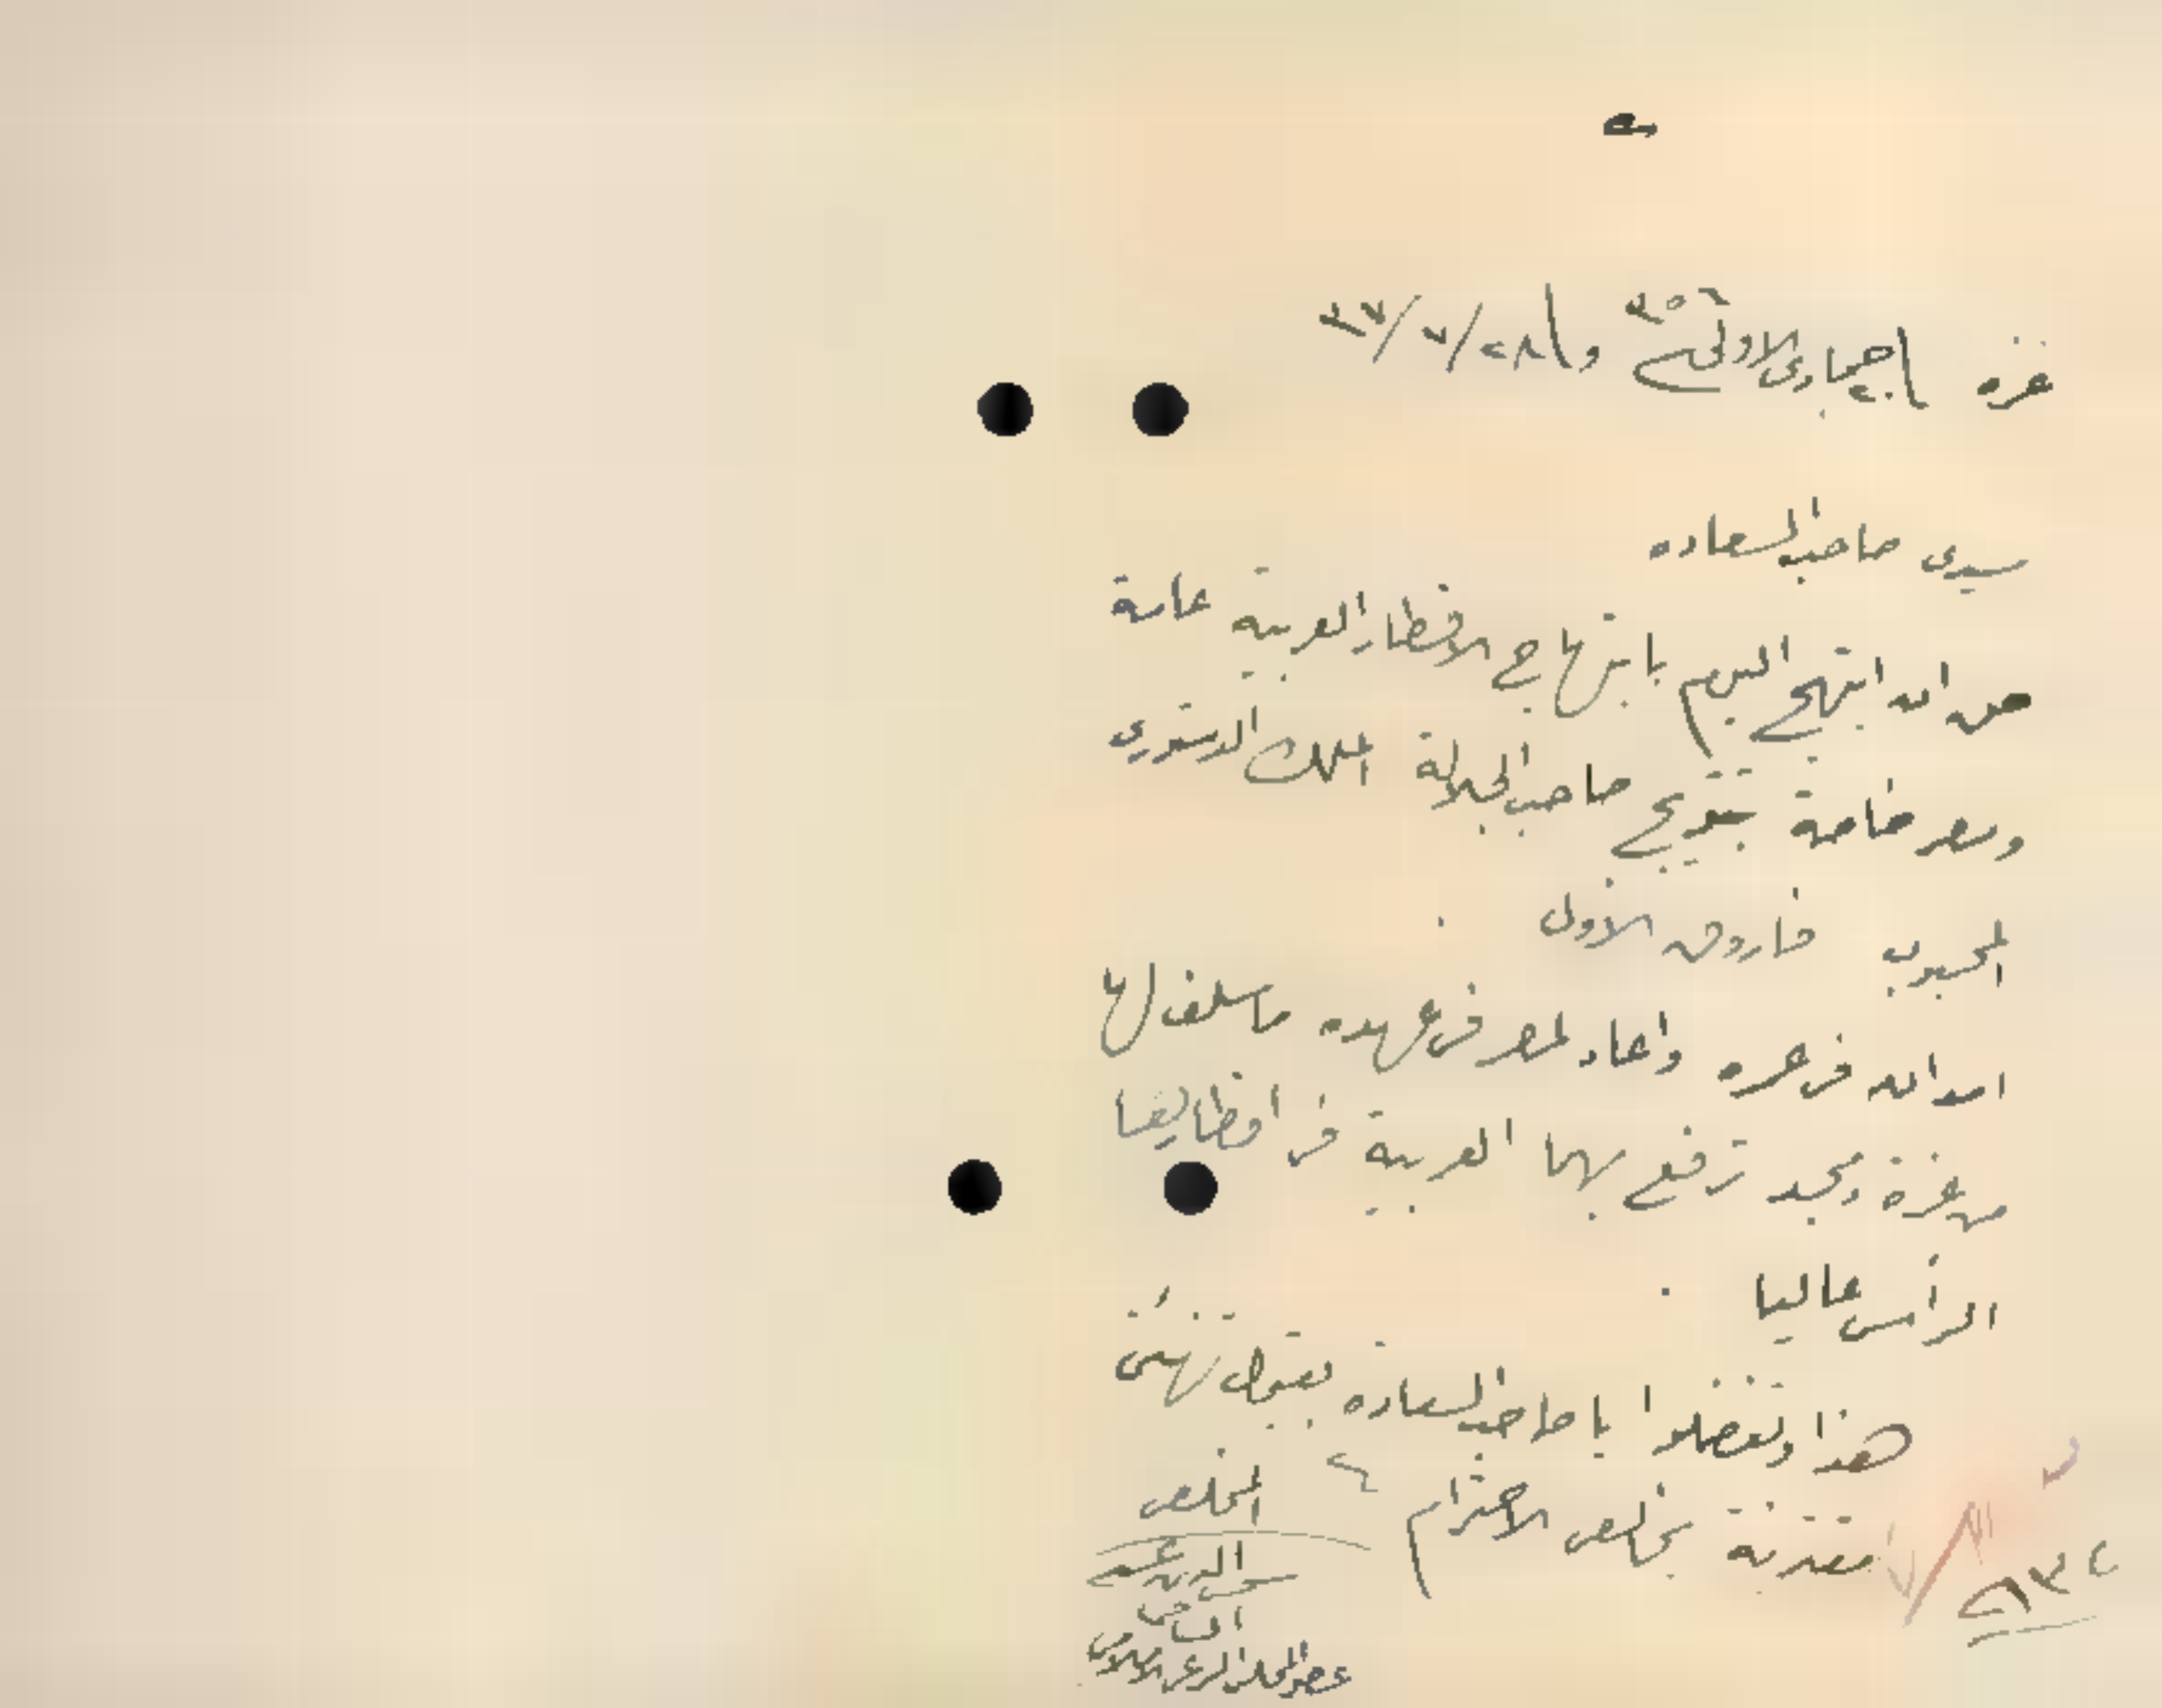 غزه ١ جمادى الاولى ٣٥٦ و ٢٨/٧/٣٧
سيدى صاحب السعاده
الله ابتهج اليوم بابتهاج الاقطار العربية عامة
ومصر خاصة بتتويج صاحب الجلالة الملك الدستورى
المحبوب فاروق الاول .
امد الله فى عمره واعاد لمصر فى عهده ما سلف لها
من عزة ومجد ترفع بهما العربية فى اقطارها
الرأس عاليا .
هذا وتفضلوا يا صاحب السعاده بقبول تهنئتى
مقترنة بخالص الاحترام
المخلص
عضو المجلس الشرعى الاسلامى